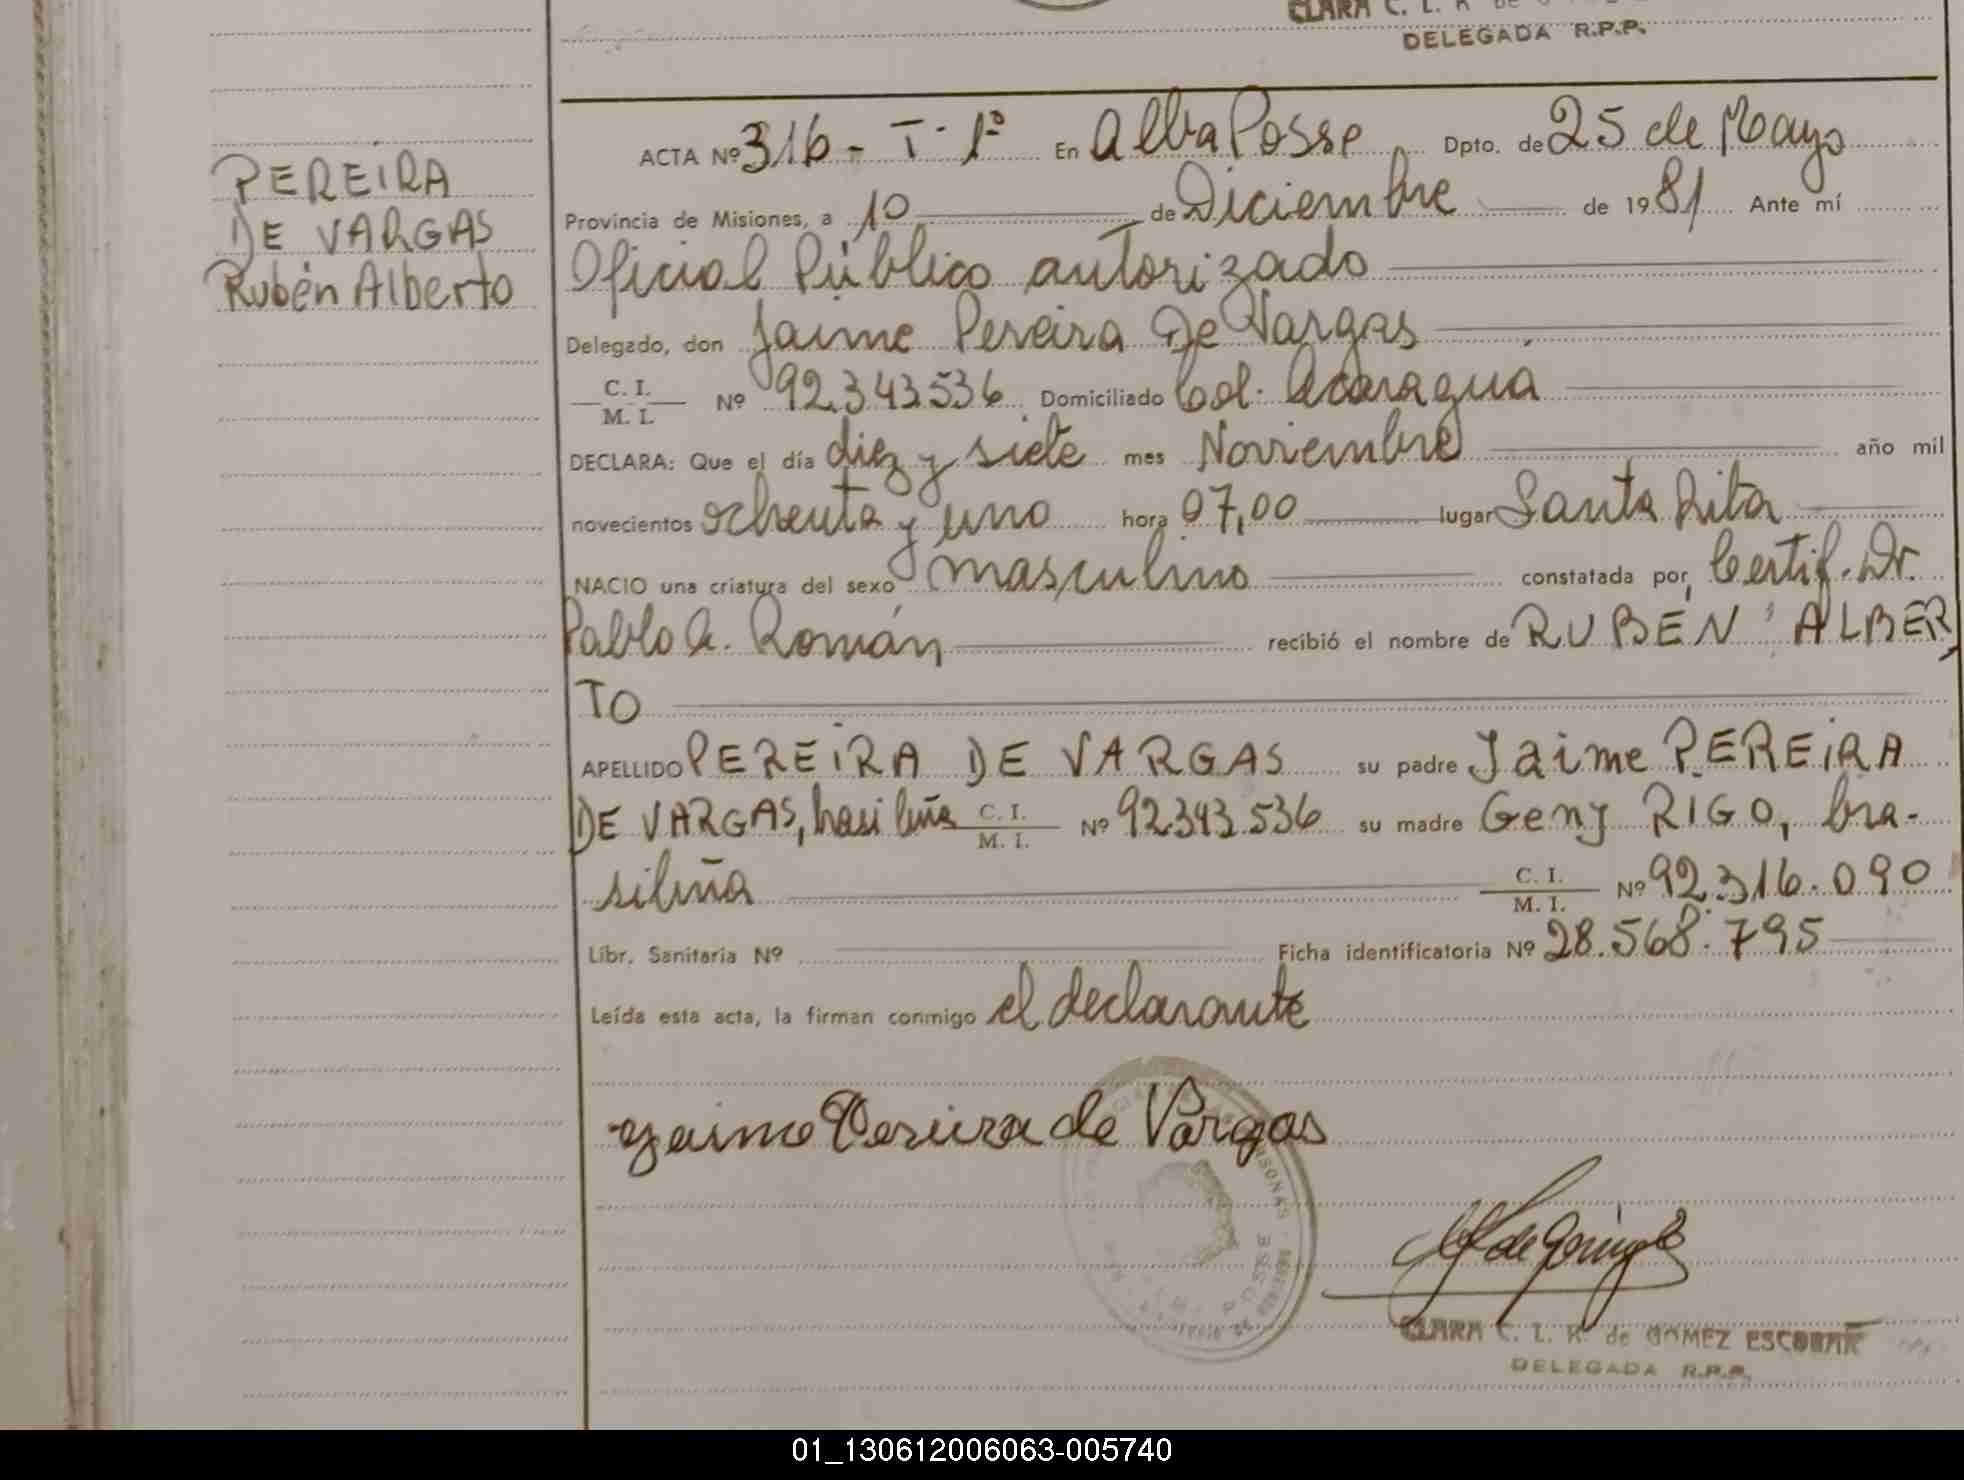 CLARA C. L. R. de
DELEGADA R.P.P.
PEREIRA
DE VARGAS
Rubén Alberto
ACTA Nº 316 - T. 1º En Alba Posse Dpto. de 25 de Mayo
Provincia de Misiones, a 10 de Diciembre de 1981 Ante mí
Oficial Público autorizado
Delegado, don Jaime Pereira De Vargas
C. I.
M. I. Nº 92.343.536 Domiciliado Col. Acaragua
DECLARA: Que el día diez y siete mes Noviembre año mil
novecientos ochenta y uno hora 07,00 lugar Santa Rita
NACIO una criatura del sexo masculino constatada por, Certif. Dr.
Pablo A. Román recibió el nombre de RUBÉN ALBER
TO
APELLIDO PEREIRA DE VARGAS su padre Jaime PEREIRA
DE VARGAS, brasileño C. I. M. I. Nº 92.343.536 su madre Geny RIGO, bra-
sileña C. I. M. I. Nº 92.316.090
Libr. Sanitaria Nº Ficha identificatoria Nº 28.568.795
Leída esta acta, la firman conmigo el declarante
Jaime Pereira de Vargas
CLARA C. L. R. de GOMEZ ESCOBAR
DELEGADA R.P.P.
01_130612006063-005740